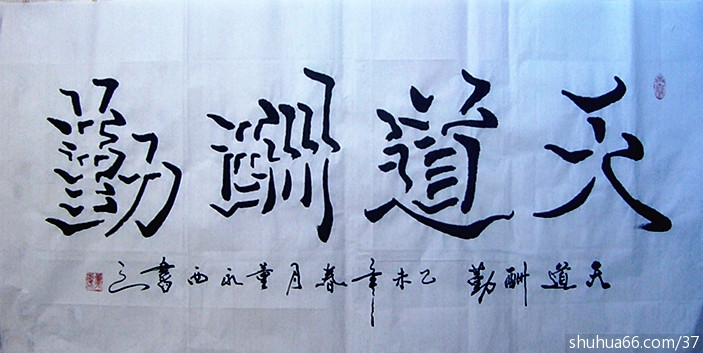 天道酬勤
天道酬勤 乙未年春月董永西書
shuhua66.com/37